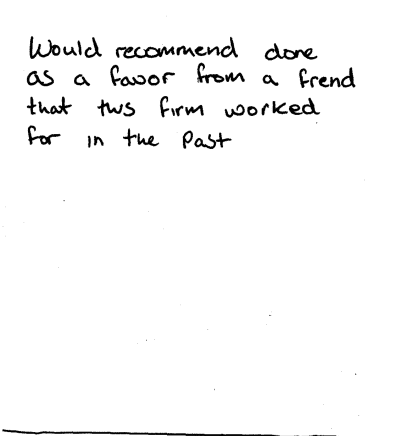 Would recommend done
as a favor from a frend
that this firm worked
for in the Past